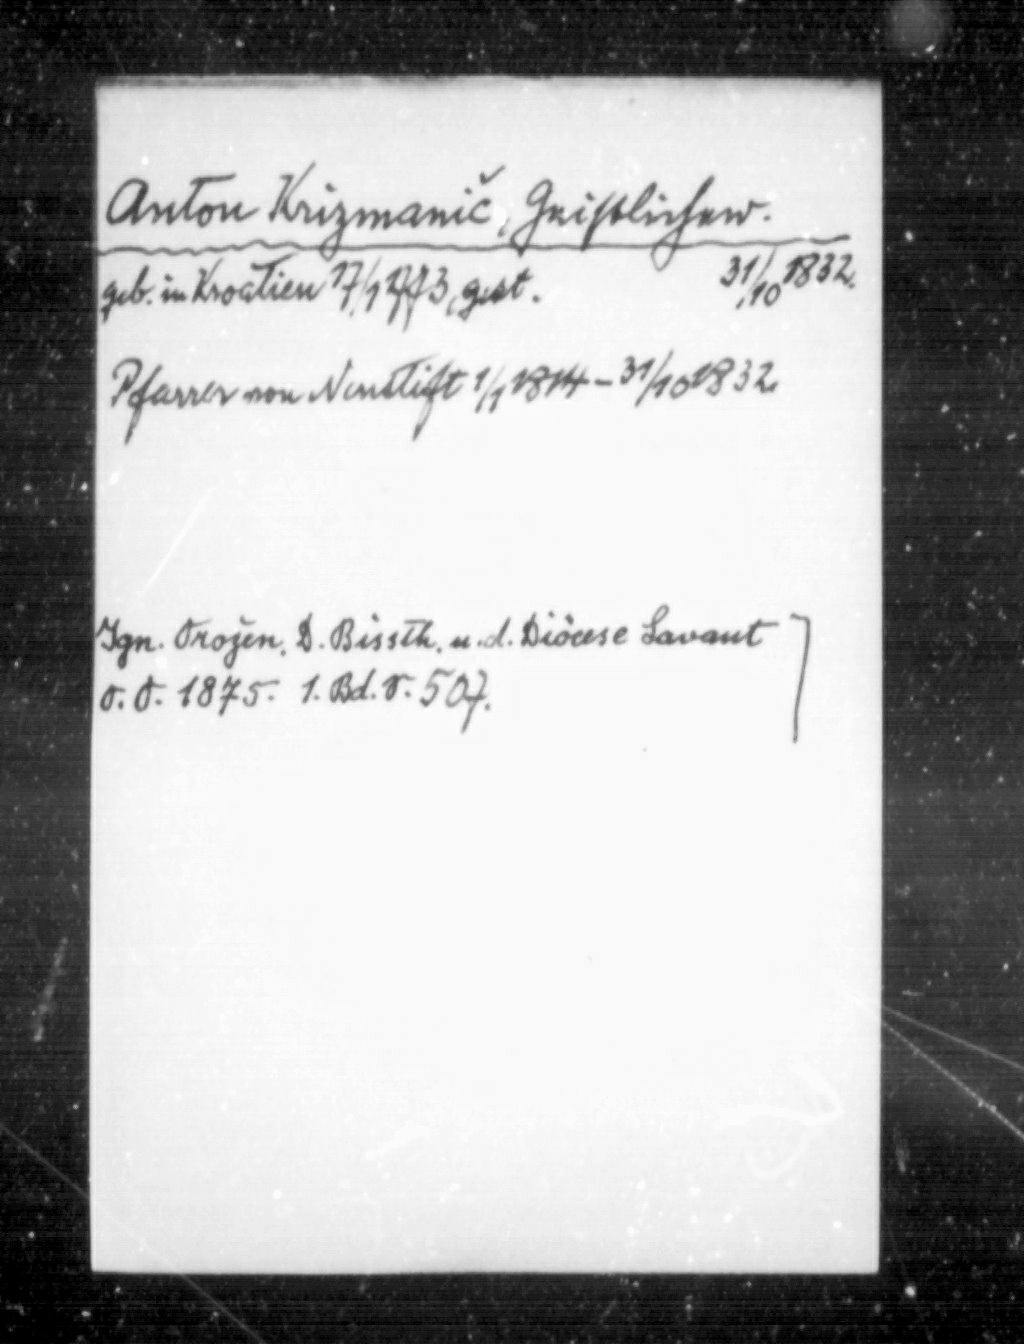 Anton Krizmanič, Geistlicher.
geb. in Kroatien 17/1 1773, gest. 31/10 1832.
Pfarrer von Neustift 1/1 1814 – 31/10 1832.
Ign. Orožen, D. Bissth. u. d. Diöcese Lavant
S. 1875. 1. Bd. S. 507.